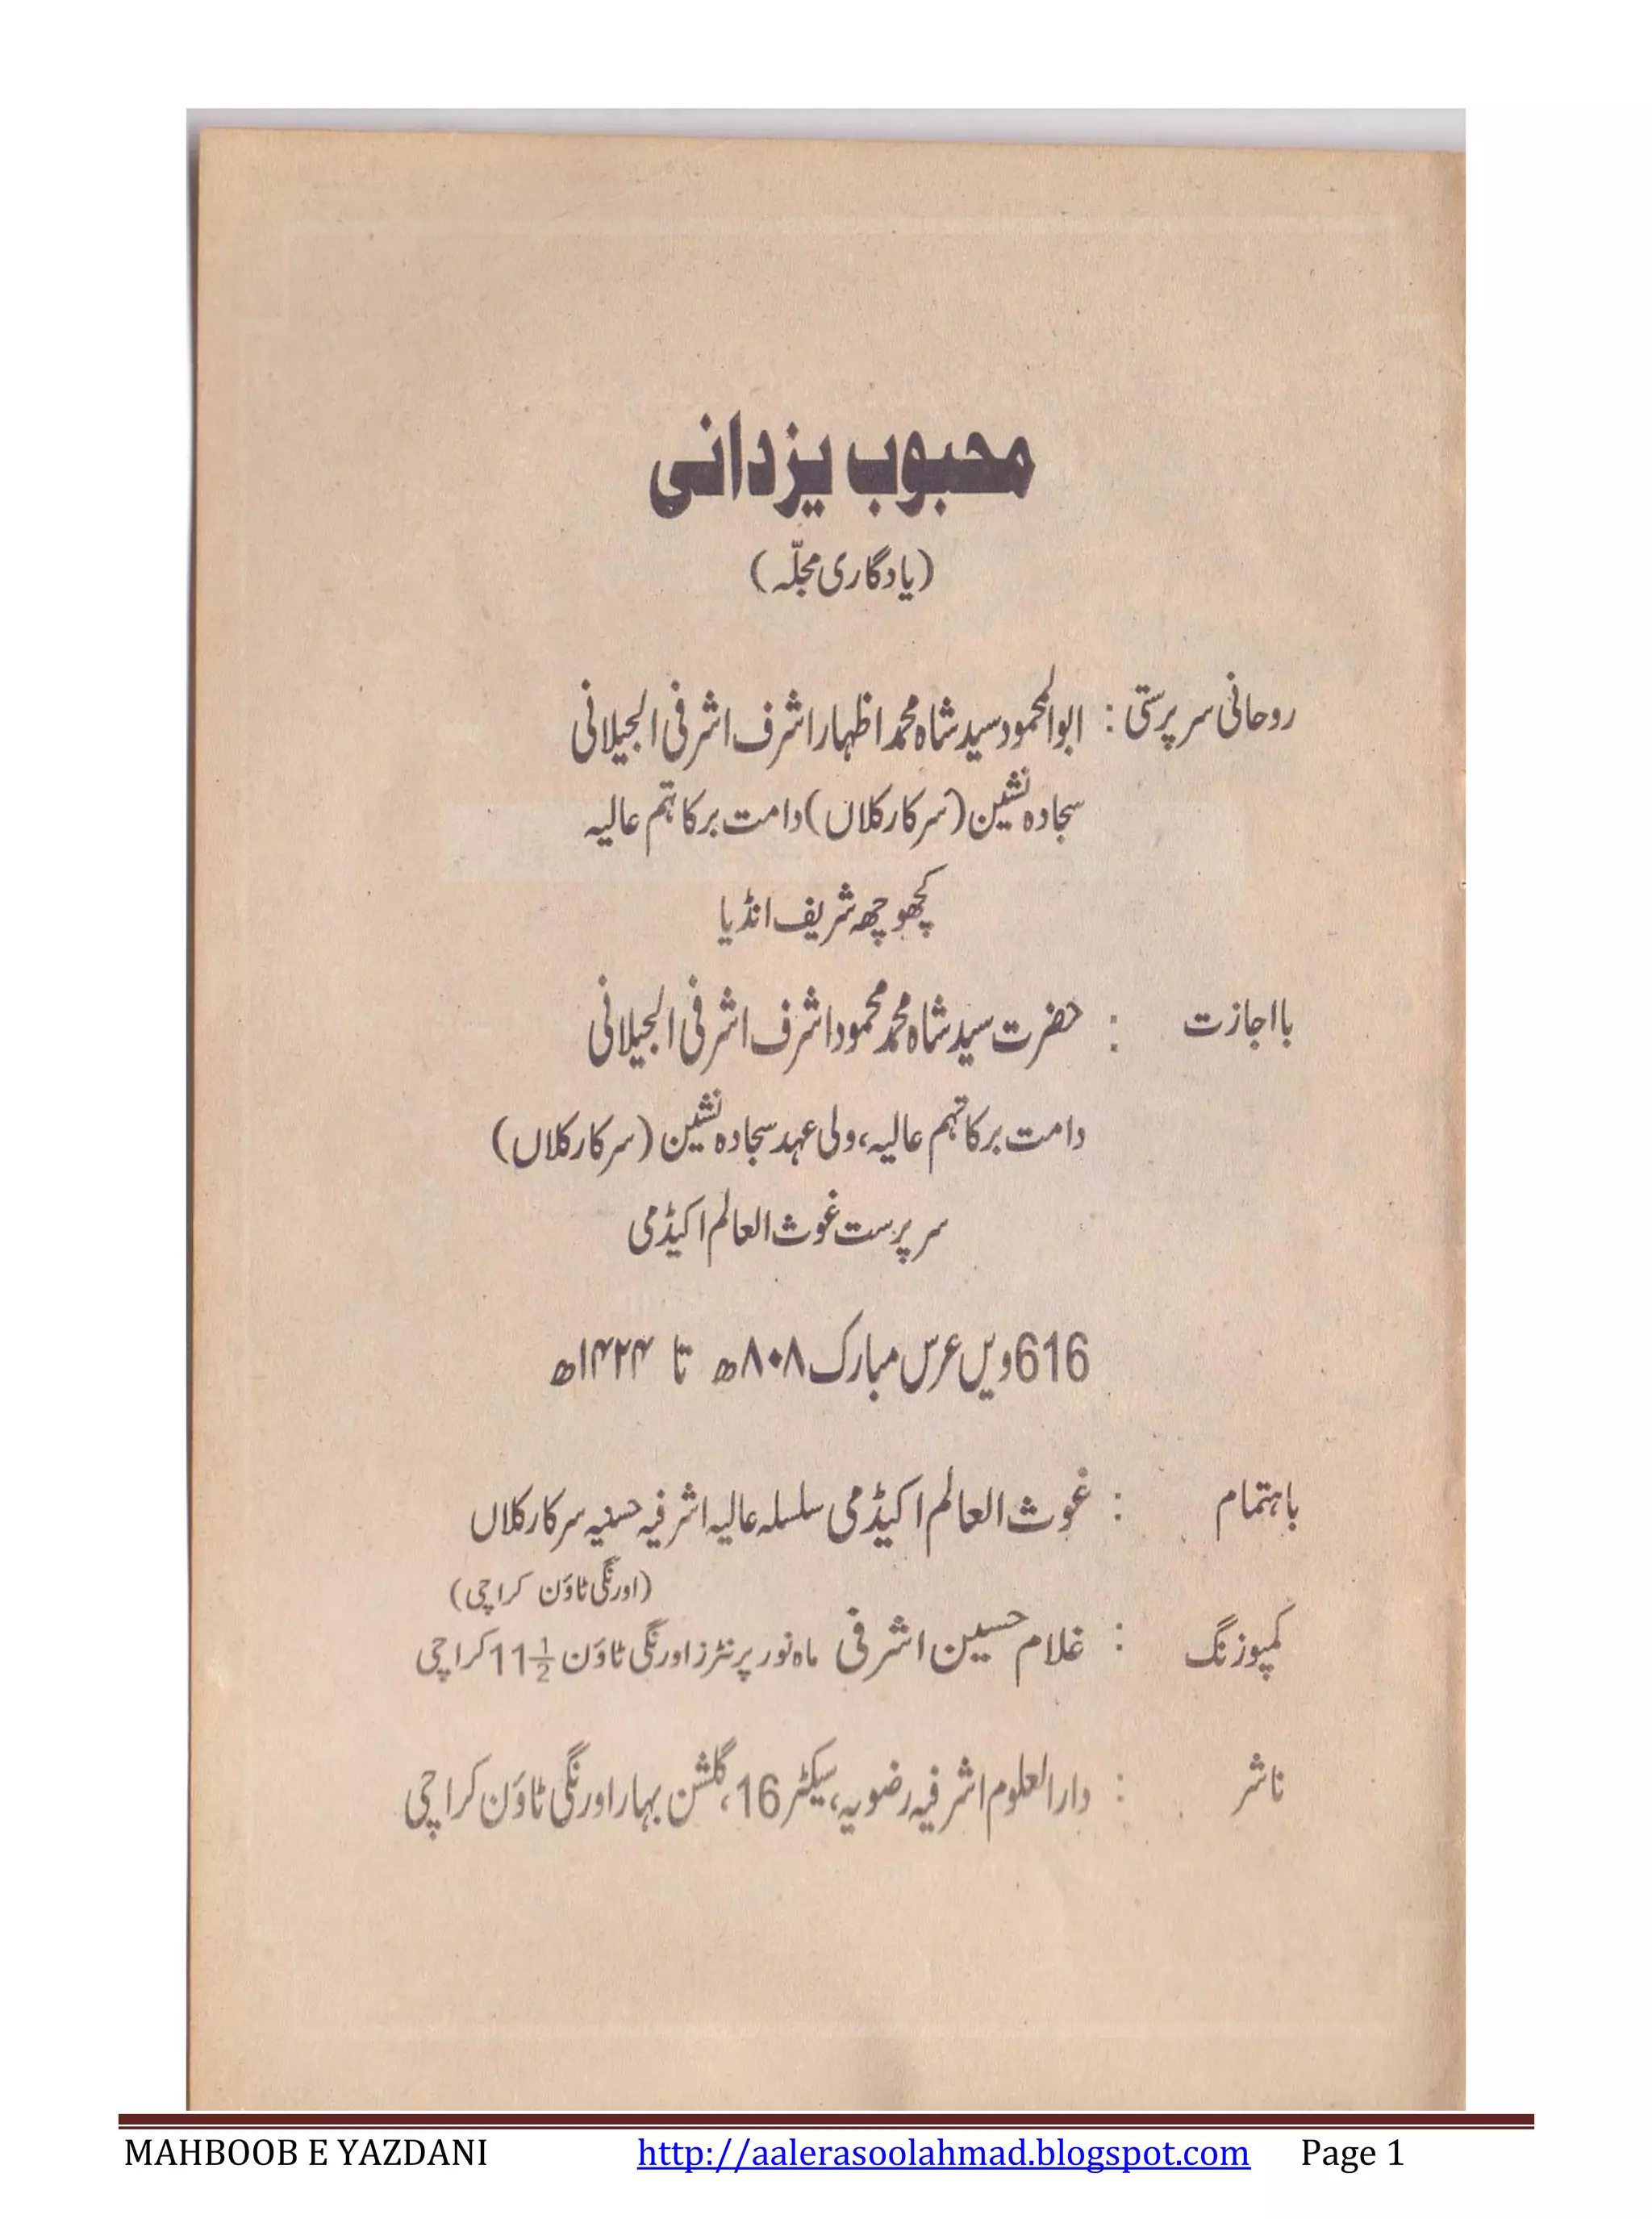 محبوب یزدانی
(یادگاری مجلّہ)
روحانی سرپرستی : ابوالمحمود سید شاہ محمد اظہار اشرف اشرفی الجیلانی
سجادہ نشین (سرکار کلاں) دامت برکاتہم عالیہ
کچھوچھہ شریف انڈیا
بااجازت : حضرت سید شاہ محمد محمود اشرف اشرفی الجیلانی
دامت برکاتہم عالیہ، ولی عہد سجادہ نشین (سرکار کلاں)
سرپرست غوث العالم اکیڈمی
616 ویں عرس مبارک ۸۰۸ھ تا ۱۴۲۴ھ
باہتمام : غوث العالم اکیڈمی سلسلہ عالیہ اشرفیہ حسنیہ سرکار کلاں
(اورنگی ٹاؤن کراچی)
کمپوزنگ : غلام حسین اشرفی ماہ نور پرنٹرز اورنگی ٹاؤن 11½ کراچی
ناشر : دارالعلوم اشرفیہ رضویہ، سیکٹر 16، گلشن بہار اورنگی ٹاؤن کراچی
MAHBOOB E YAZDANI http://aalerasoolahmad.blogspot.com Page 1